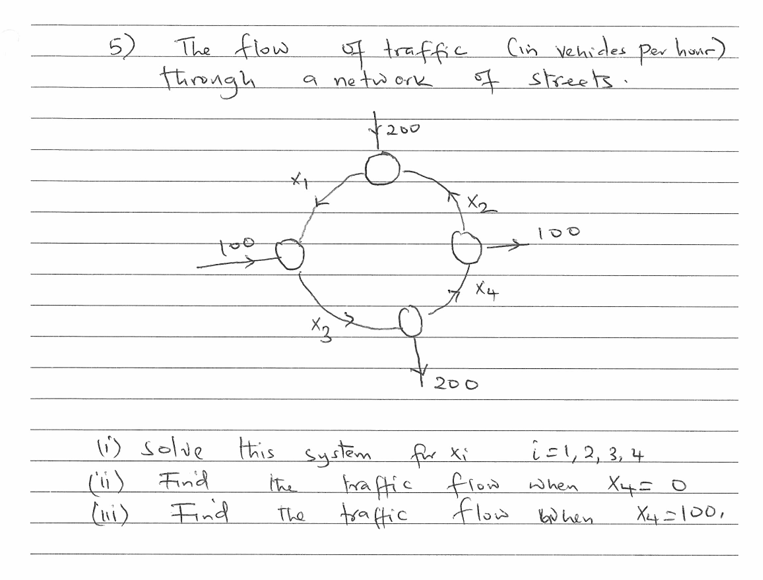 5) The flow of traffic (in vehicles per hour)
through a network of streets.
200
x1
x2
100
100
x4
x3
200
(i) solve this system for xi i=1, 2, 3, 4
(ii) Find the traffic flow when x4= 0
(iii) Find the traffic flow when x4=100.